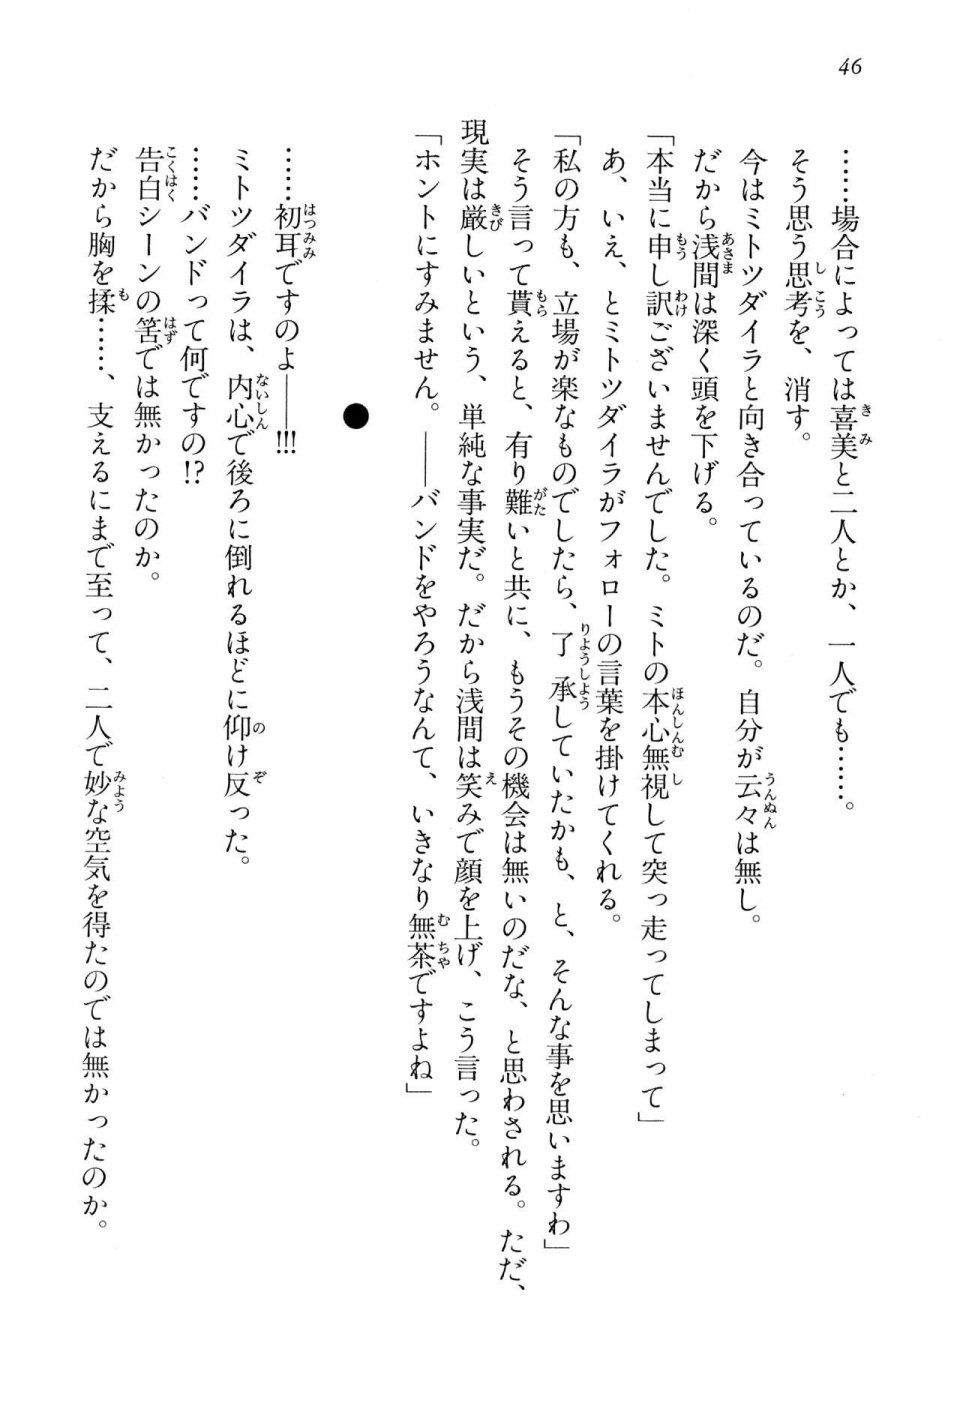 46
……場合によっては喜美と二人とか、一人でも……。
そう思う思考を、消す。
今はミトツダイラと向き合っているのだ。自分が云々は無し。
だから浅間は深く頭を下げる。
「本当に申し訳ございませんでした。ミトの本心無視して突っ走ってしまって」
あ、いえ、とミトツダイラがフォローの言葉を掛けてくれる。
「私の方も、立場が楽なものでしたら、了承していたかも、と、そんな事を思いますわ」
そう言って貰えると、有り難いと共に、もうその機会は無いのだな、と思わされる。ただ、
現実は厳しいという、単純な事実だ。だから浅間は笑みで顔を上げ、こう言った。
「ホントにすみません。――バンドをやろうなんて、いきなり無茶ですよね」
●
……初耳ですのよ――!!!
ミトツダイラは、内心で後ろに倒れるほどに仰け反った。
……バンドって何ですの!?
告白シーンの筈では無かったのか。
だから胸を揉……、支えるにまで至って、二人で妙な空気を得たのでは無かったのか。